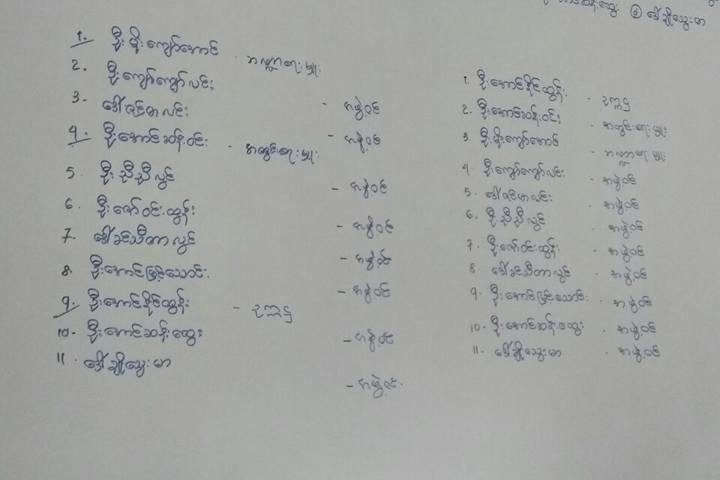 ဦးဆန်းထွေး ② ဒေါ်ချိုသွေးမာ
1. ဦးမိုးကျော်အောင် - ဘဏ္ဍာရေးမှူး
2. ဦးကျော်ကျော်လင်း - အဖွဲ့ဝင်
3. ဒေါ်ဇင်မာလင်း - အဖွဲ့ဝင်
၎. ဦးအောင်ဆန်းဝင်း - အတွင်းရေးမှူး
5. ဦးညီညီလွင် - အဖွဲ့ဝင်
6. ဦးဇော်ဝင်းထွန်း - အဖွဲ့ဝင်
7. ဒေါ်ခင်သီတာလွင် - အဖွဲ့ဝင်
8. ဦးအောင်မြင့်သောင်း - အဖွဲ့ဝင်
9. ဦးအောင်နိုင်ထွန်း - ဥက္ကဋ္ဌ
10. ဦးအောင်ဆန်းထွေး - အဖွဲ့ဝင်
11. ဒေါ်ချိုသွေးမာ - အဖွဲ့ဝင်
1. ဦးအောင်နိုင်ထွန်း - ဥက္ကဋ္ဌ
2. ဦးအောင်ဆန်းဝင်း - အတွင်းရေးမှူး
3. ဦးမိုးကျော်အောင် - ဘဏ္ဍာရေးမှူး
4. ဦးကျော်ကျော်လင်း - အဖွဲ့ဝင်
5. ဒေါ်ဇင်မာလင်း - အဖွဲ့ဝင်
6. ဦးညီညီလွင် - အဖွဲ့ဝင်
7. ဦးဇော်ဝင်းထွန်း - အဖွဲ့ဝင်
8. ဒေါ်ခင်သီတာလွင် - အဖွဲ့ဝင်
9. ဦးအောင်မြင့်သောင်း - အဖွဲ့ဝင်
10. ဦးအောင်ဆန်းထွေး - အဖွဲ့ဝင်
11. ဒေါ်ချိုသွေးမာ - အဖွဲ့ဝင်